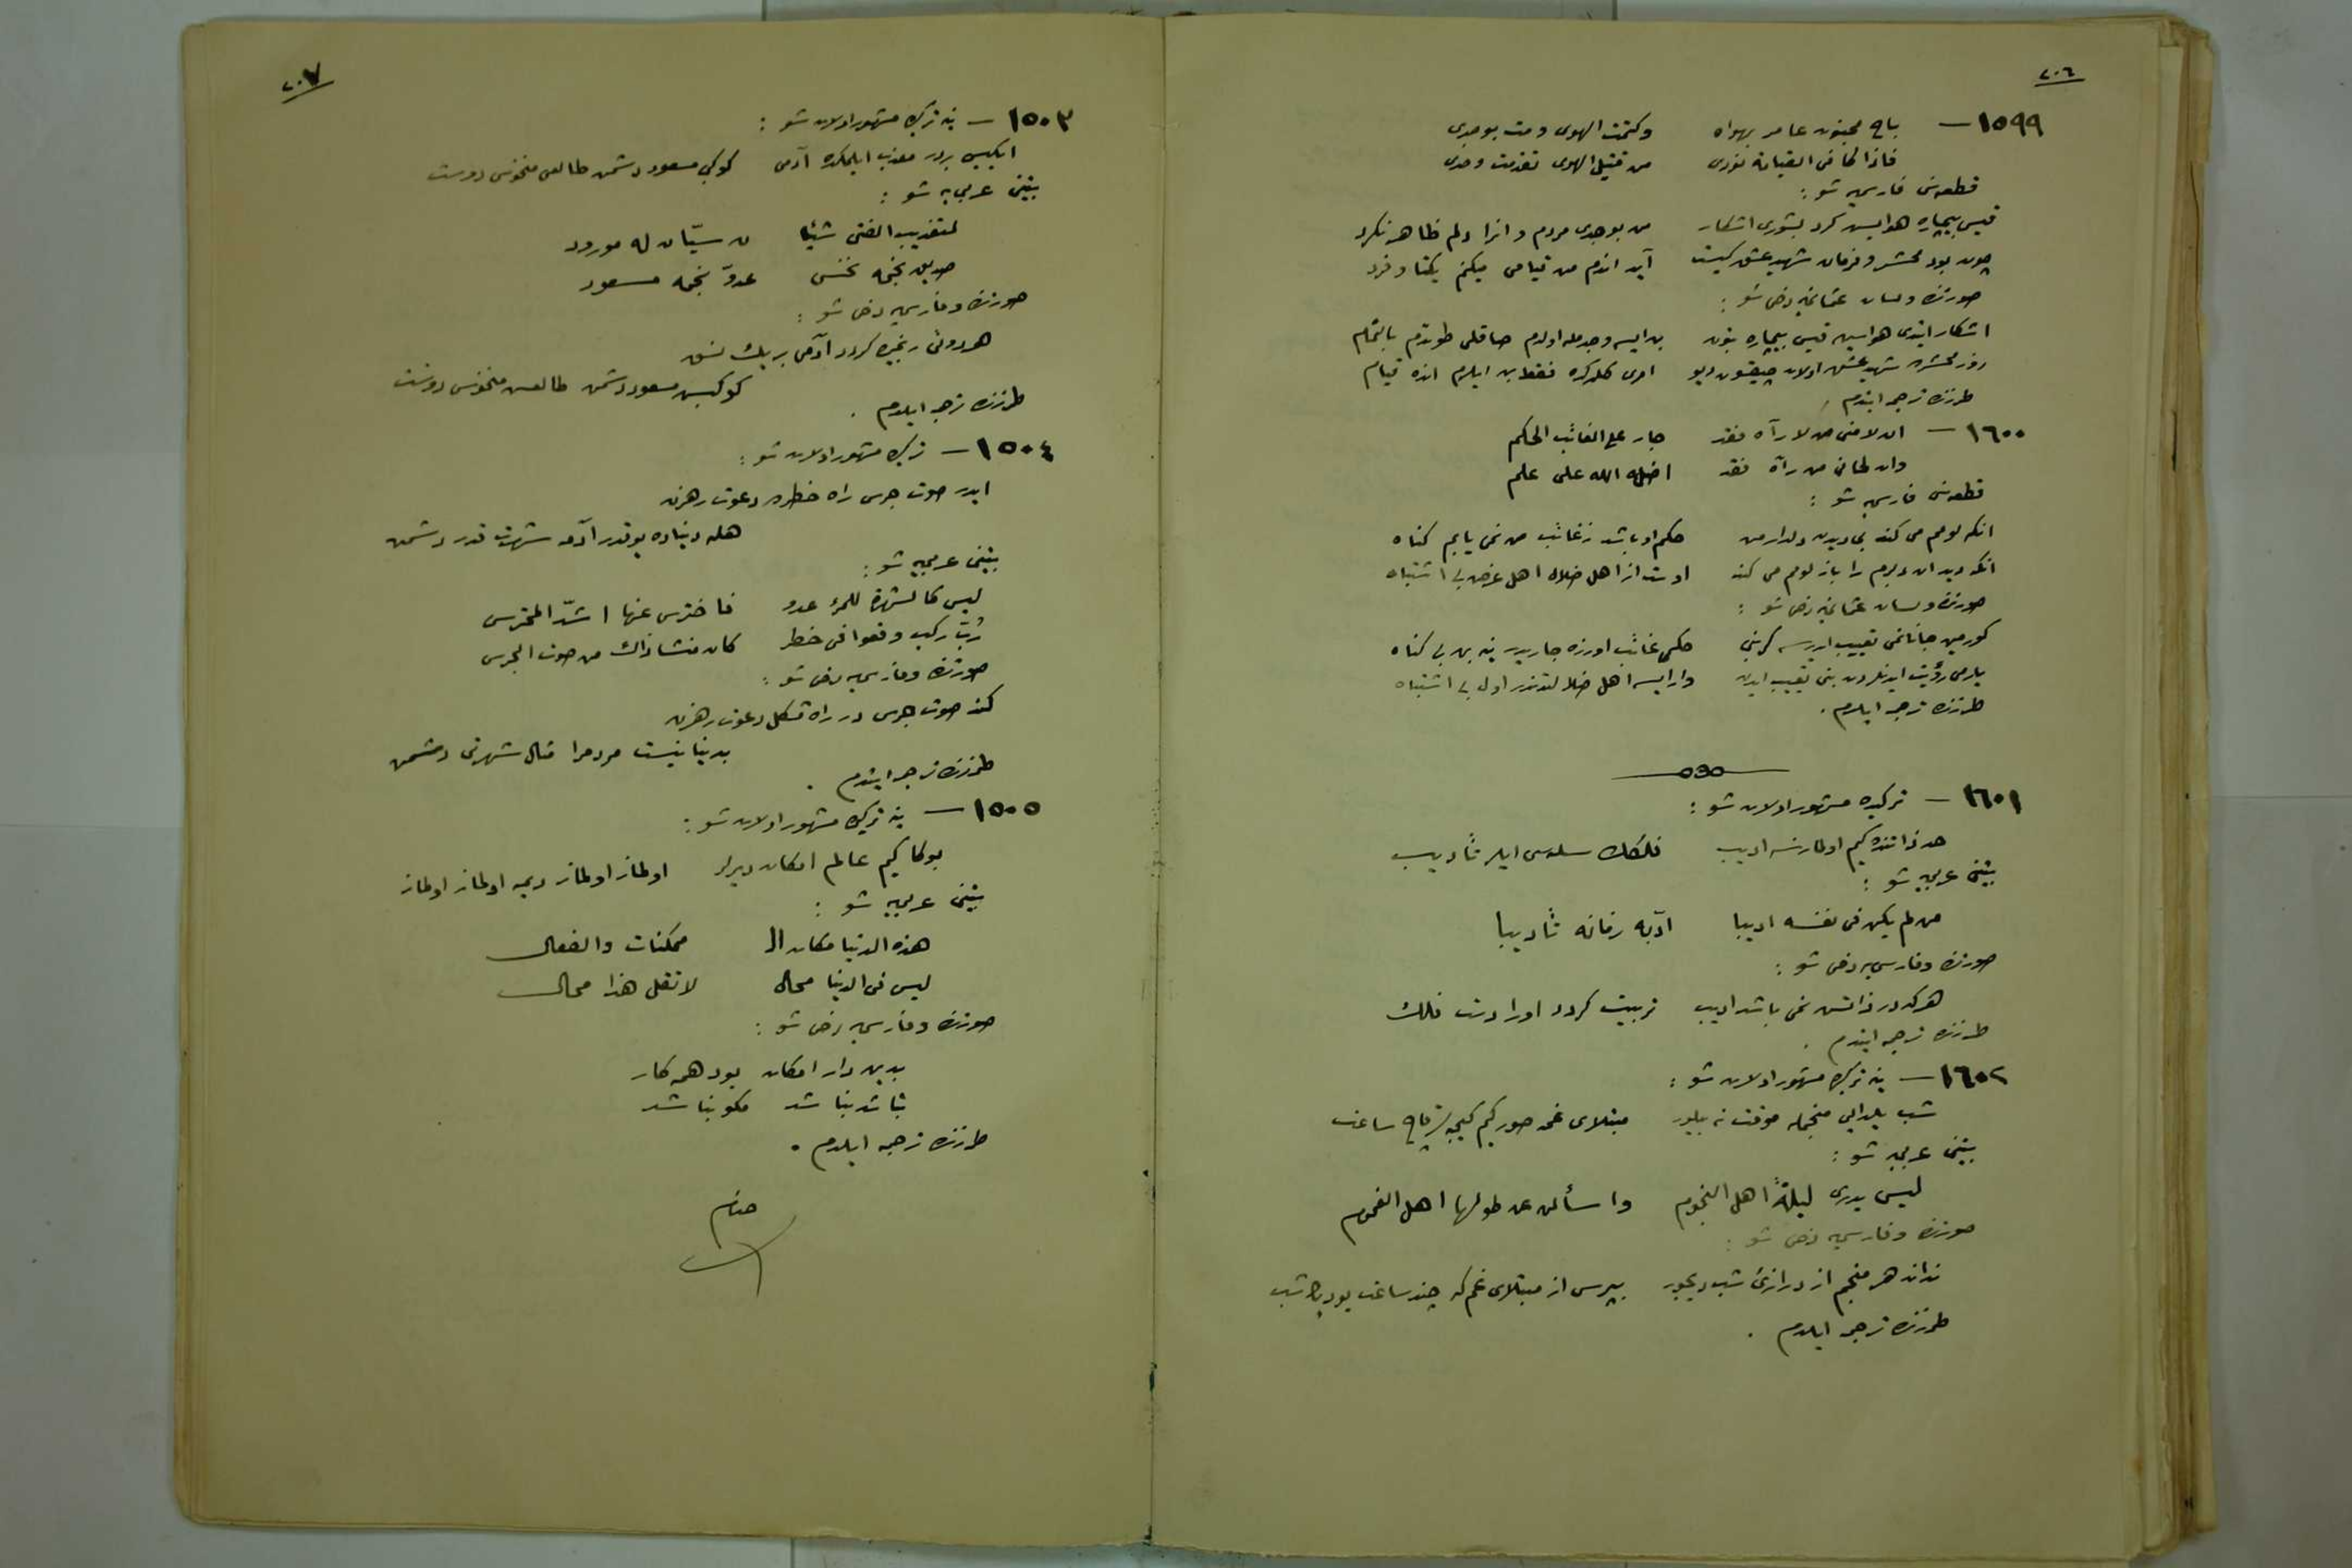 ٢٠٦
١٥٩٩ — باح مجنون عامر بهواه وكتمت الهوى ومت بوجدى
فاذا كان فى القيامة نودى من قتيل الهوى تقدمت وحدى
قطعه‌سنى فارسى‌یه شو :
قيس بيچاره هوايش كرد بشورى اشكار من بوجدى مردم و انرا دلم ظاهر نكرد
چون بود محشر و فرمان شهيد عشق كيست آيد اندم من قيامى ميكنم يكتا و فرد
صورتده ولسان عثمانى‌یه دخى شو :
اشكار ايتدى هواسين قيس بيچاره بتون بن ايسه وجدمله اولدم صاقلى طوتدم بالتمام
روز محشرده شهيد عشق اولان چيقسون ديو امرى كلدكده فقط بن ايلرم انده قيام
طرزنده ترجمه ايتدم .
١٦٠٠ — ان لامنى من لا رآه فقد جار على الغائب الحكم
وان لحانى من رآه فقد اضله الله على علم
قطعه‌سنى فارسى‌یه شو :
انكه لومم مى كند بى ديدن دلدار من حكم او باشد ز غائب من نمى يابم كناه
انكه ديد ان دلبرم را باز لومم مى كند اوست از اهل ضلال اهل غرض بى اشتباه
صورتده ولسان عثمانى‌یه دخى شو :
كورمين جانانمى تعييب ايدرسه كر بنى حكمى غائب اوزره جاريدر ينه بن بى كناه
يارمى رؤيت ايدنلردن بنى تعييب ايدن وار ايسه اهل ضلالتدندر اول بى اشتباه
طرزنده ترجمه ايلدم .
١٦٠١ — تركيده مشهور اولان شو :
حد ذاتنده كيم اولمازسه اديب فلكك سله‌سى ايلر تأديب
بيتنى عربى‌یه شو :
من لم يكن فى نفسه اديبا ادّبه زمانه تأديبا
صورتده وفارسى‌یه دخى شو :
هركه در ذاتش نمى باشد اديب تربيت كردد اورا دست فلك
طرزنده ترجمه ايتدم .
١٦٠٢ — ينه تركيده مشهور اولان شو :
شب يلدايى منجمله موقت نه بيلور مبتلاى غمه صور كيم كيجه‌لر قاچ ساعت
بيتنى عربى‌یه شو :
ليس يدرى ليلةً اهل النجوم واسألن عن طولها اهل الغموم
صورتده وفارسى‌یه دخى شو :
نداند هر منجم از درازئ شب ديجور بپرس از مبتلاى غم كه چند ساعت بود شب
طرزنده ترجمه ايلدم .
٢٠٧
١٥٠٣ — ينه تركيده مشهور اولان شو :
ايكيسى بردر معذب ايلمكده آدمى كوكبى مسعود دشمن طالعى منحوس دوست
بيتنى عربى‌یه شو :
لتعذيب الفتى شيئا ن سيّان له مورود
صديق نجمه نحس عدوّ نجمه مسعود
صورتده وفارسى‌یه دخى شو :
هردوئى رنجيده كردد آدمى بر يك نسق
كوكبش مسعود دشمن طالعش منحوس دوست
طرزنده ترجمه ايلدم .
١٥٠٤ — تركيده مشهور اولان شو :
ايدر صوت جرس راه خطرده دعوت رهزن
هله دنياده يوقدر آدمه شهرت قدر دشمن
بيتنى عربى‌یه شو :
ليس كالشهرة للمرء عدو فاحترس عنها اشدّ المحترس
رُبّ ركب وقعوا فى خطر كان منشا ذاك من صوت الجرس
صورتده وفارسى‌یه دخى شو :
كند صوت جرس در راه مشكل دعوت رهزن
بدنيا نيست مردم را مثال شهرتى دشمن
طرزنده ترجمه ايتدم .
١٥٠٥ — ينه تركيده مشهور اولان شو :
بوكا كيم عالم امكان ديرلر اولماز اولماز ديمه اولماز اولماز
بيتنى عربى‌یه شو :
هذه الدنيا مكان ال ممكنات والفعال
ليس فى الدنيا محال لا تقل هذا محال
صورتده وفارسى‌یه دخى شو :
بدين دار امكان بود همه كار
نباشد نباشد مكو نباشد
طرزنده ترجمه ايلدم .
ختام